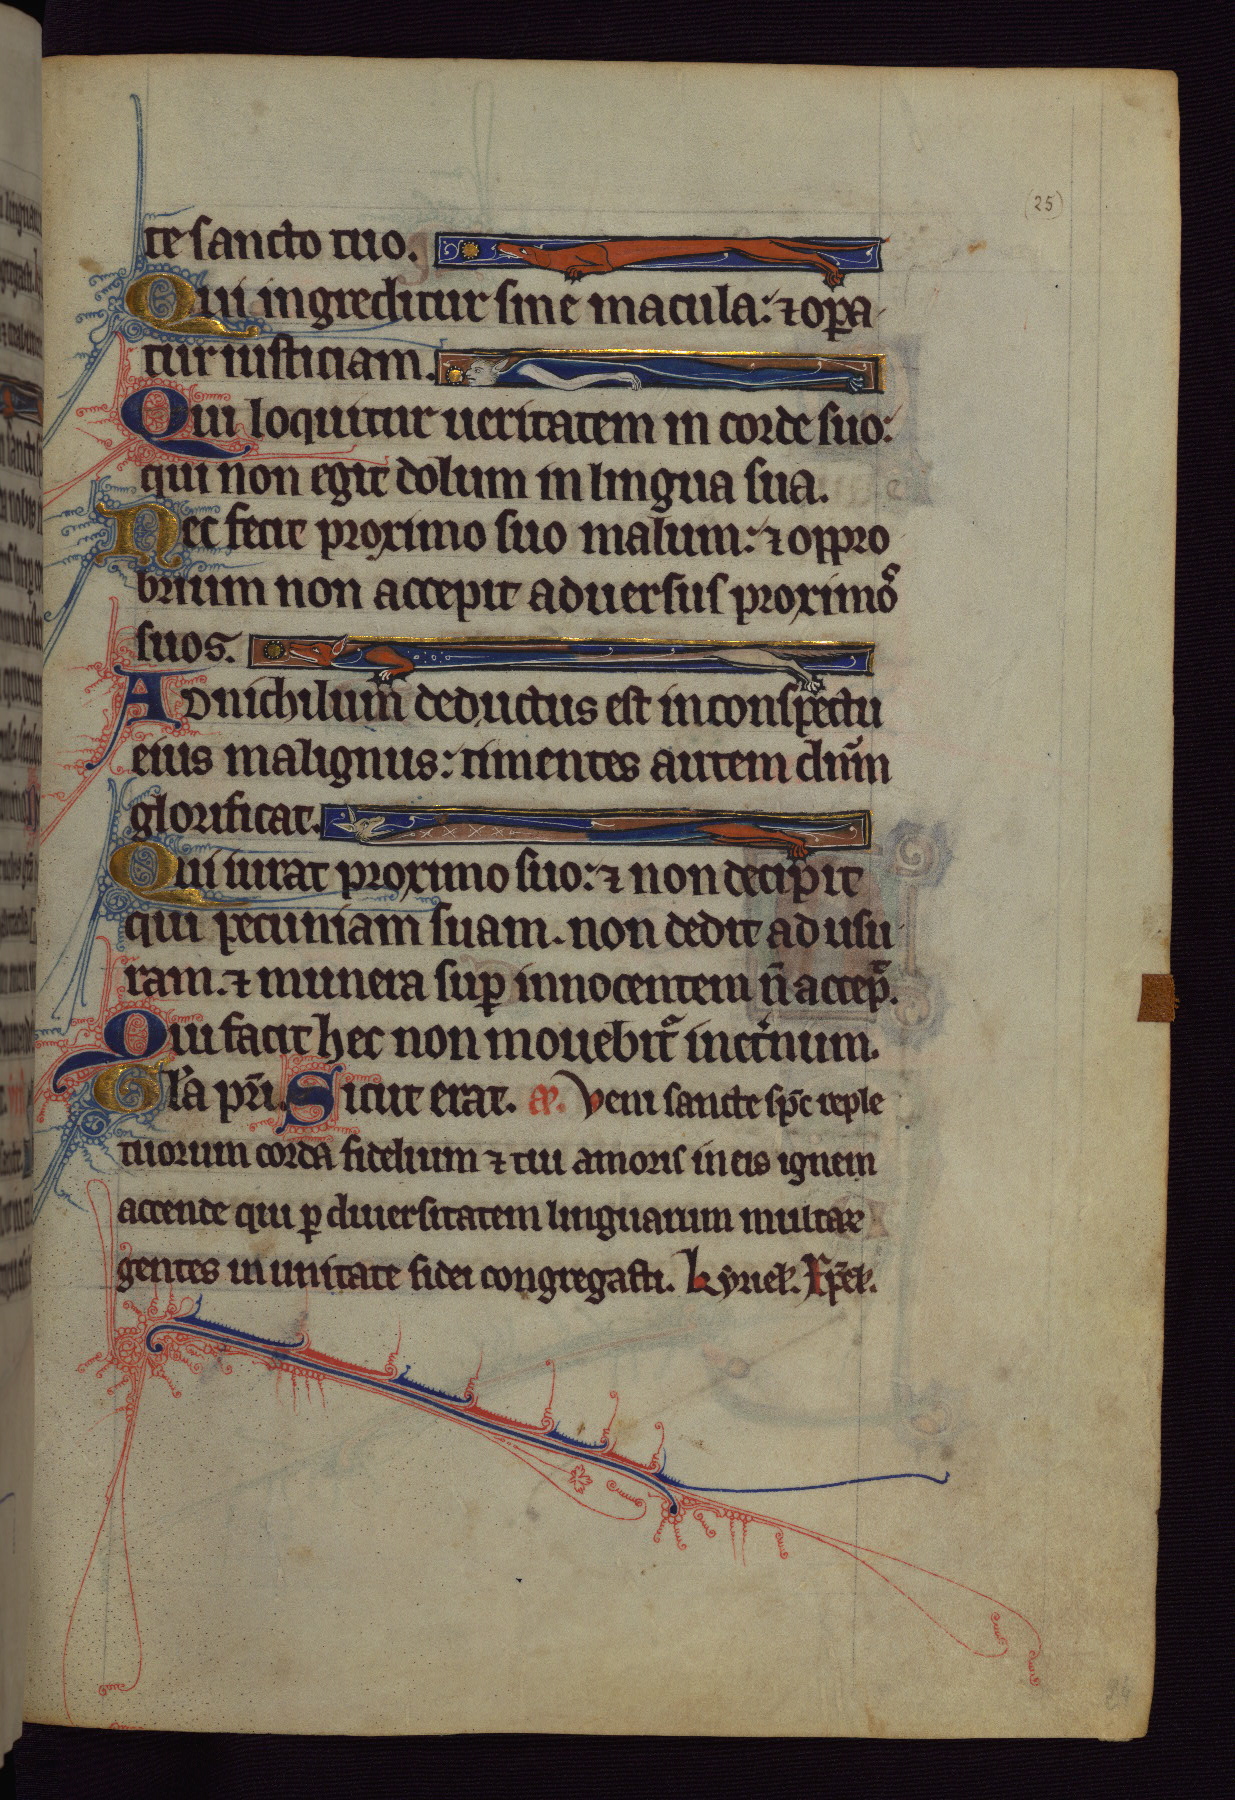 25
te sancto tuo.
Qui ingreditur sine macula: ⁊ op̲a
tur iusticiam.
Qui loquitur ueritatem in corde suo:
qui non egit dolum in lingua sua.
Nec fecit proximo suo malum: ⁊ oppro
brium non accepit aduersus proximoˢ
suos.
Ad nichilum deductus est in conspectu
eius malignus: timentes autem dn̄m
glorificat.
Qui iurat proximo suo: ⁊ non decipit
qui pecuniam suam. non dedit ad usu
ram. ⁊ munera sup̲ innocentem n̄ accep̄.
Qui facit hec non mouebit᷑ in et̄num.
Gl̄a pr̄i. Sicut erat. Veni sancte sp̄c reple
tuorum corda fidelium ⁊ tui amoris in eis ignem
accende qui p̲ diuersitatem linguarum multaꝝ
gentes in unitate fidei congregasti. kyriel. Xp̄el.
24